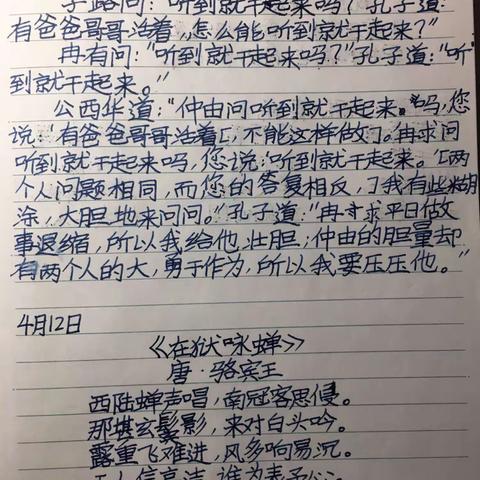 子路问："听到就干起来吗？"孔子道：
有爸爸哥哥活着，怎么能听到就干起来？"
冉有问："听到就干起来吗？"孔子道："听
到就干起来。"
公西华道："仲由问听到就干起来。"吗，您
说：'有爸爸哥哥活着[，不能这样做]。冉求问
听到就干起来吗，您说：'听到就干起来。'[两
个人问题相同，而您的答复相反，]我有些糊
涂，大胆地来问问。"孔子道："冉求平日做
事退缩，所以我给他壮胆；仲由的胆量却
有两个人的大，勇于作为，所以我要压压他。"
4月12日
《在狱咏蝉》
唐·骆宾王
西陆蝉声唱，南冠客思侵。
那堪玄鬓影，来对白头吟。
露重飞难进，风多响易沉。
无人信高洁，谁为表予心。